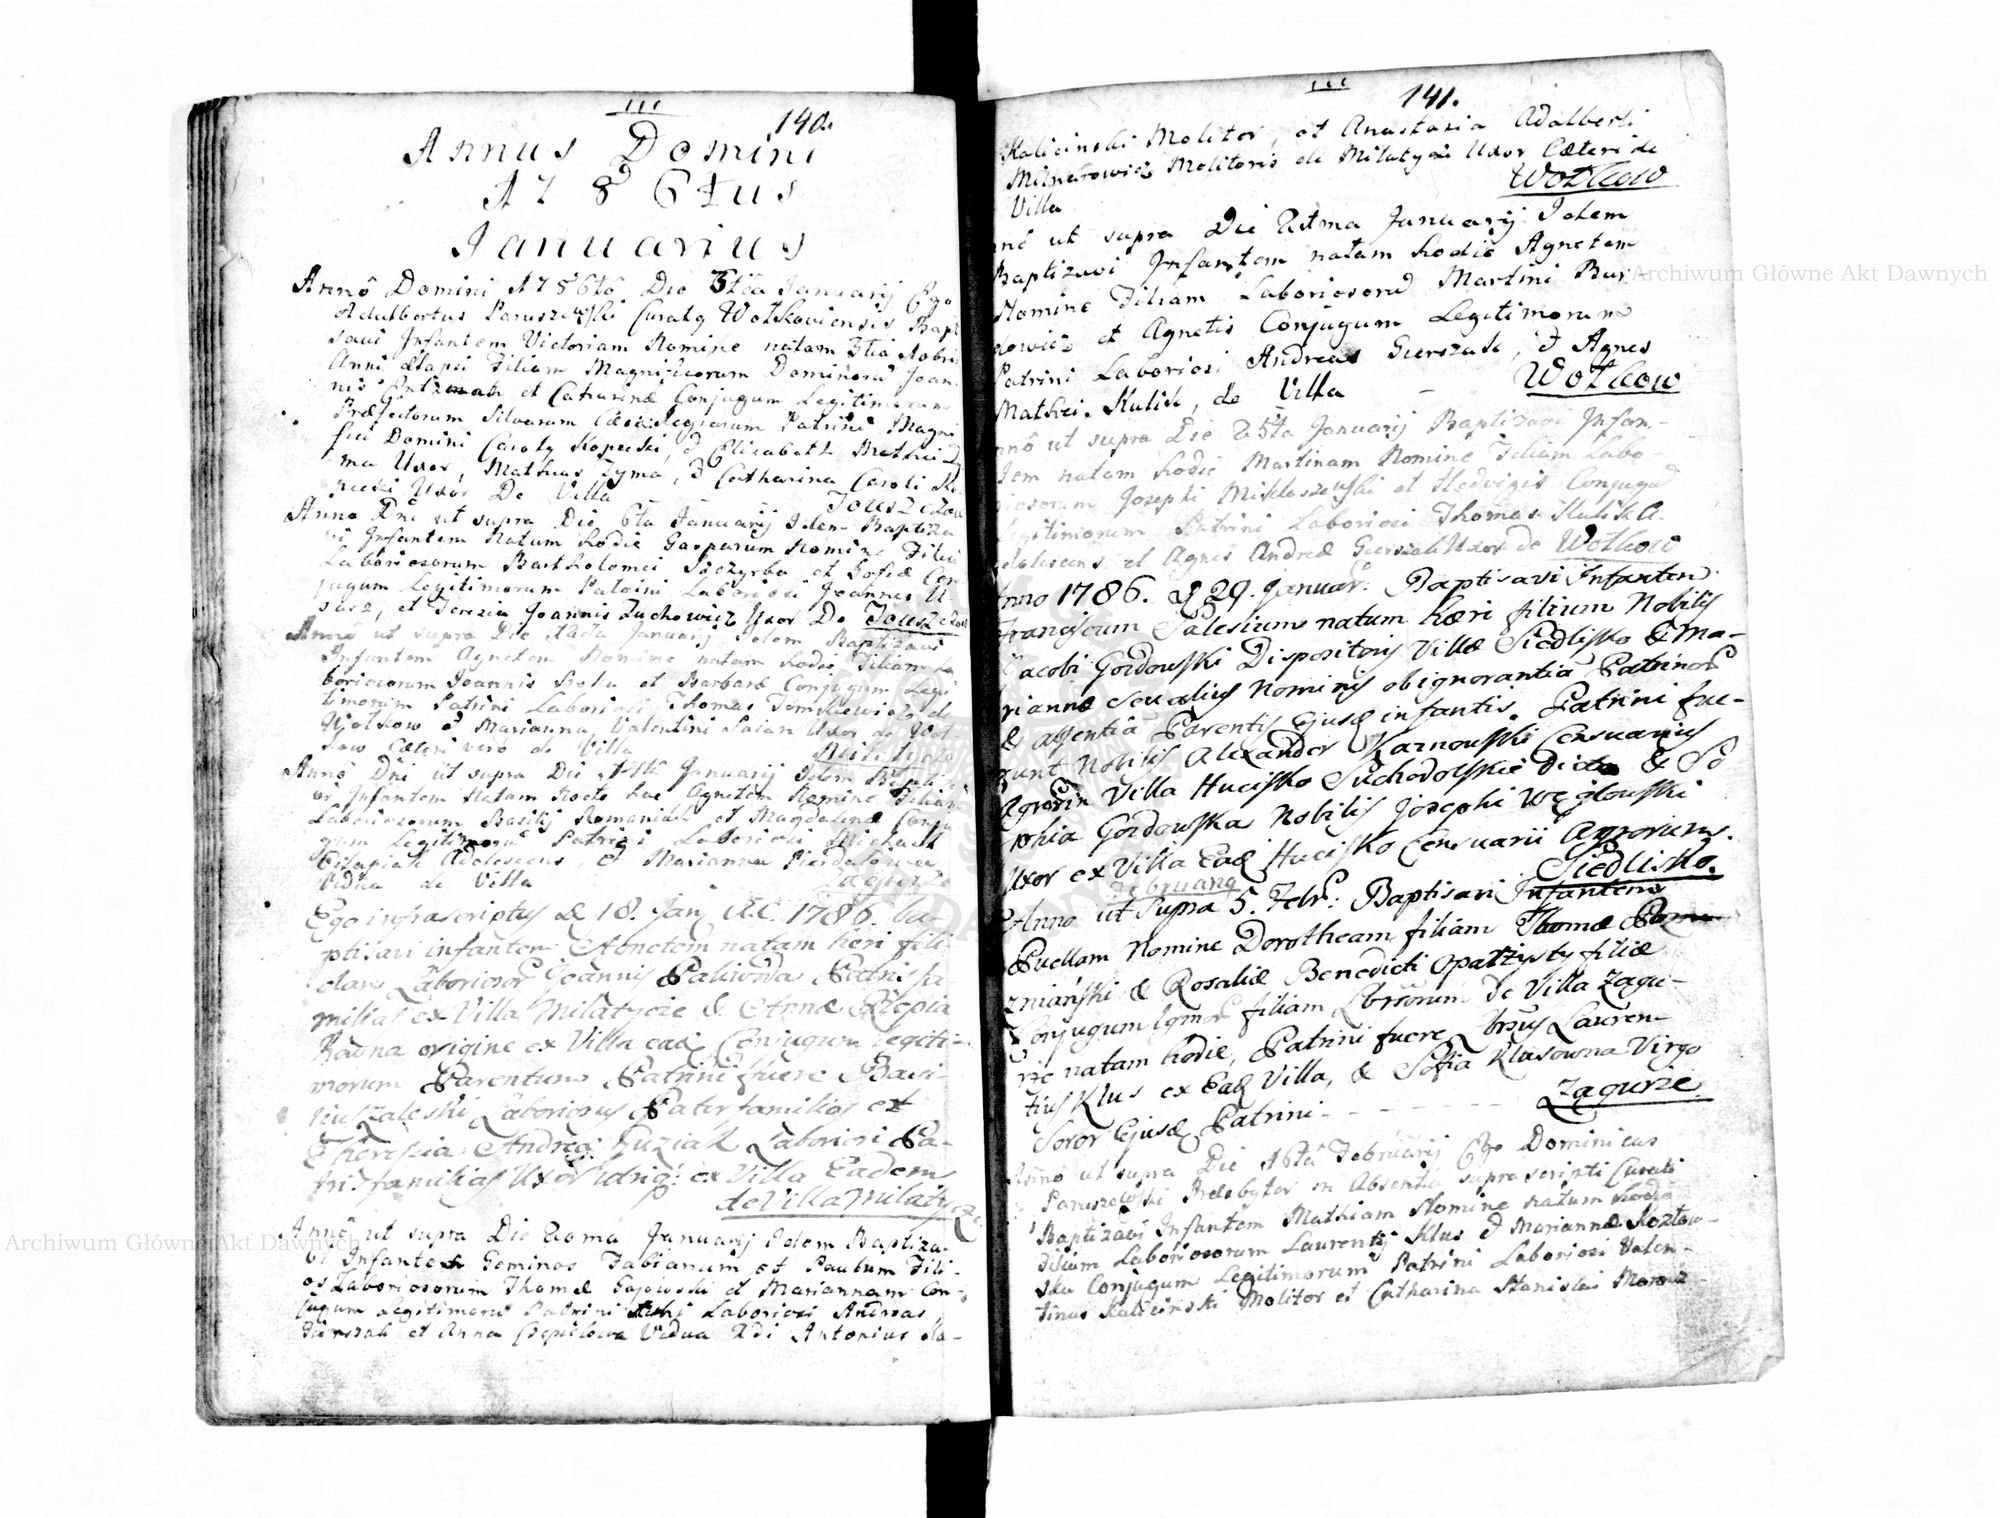 140.
Annus Domini
1786tus
Januarius
Annô Domini 1786tô Die 3tia Januarij Ego
Adalbertus Paruszewski Curatq Wotkoviensis Bapti
savi Infantem Victoriam Nomine natam 3tia
Anni Elapsi Filiam Magnificorum Dominorũ Joan-
nis et Catharinæ Conjugum Legitimorum
Præfectorum Silvarum Patrini Magni
fici Domini Karoly Kopecki, & Elizabeth Mathei
ma Uxor, Mathias Zyma, & Catharina Caroli Ko
pecki Uxor De Villa
Anno Dni ut supra Die 6ta Januarij Idem Baptiza
vi Infantem Natum hodie Gasparum Nomine Filiũ
Laboriosorum Bartholomei Szczyrba et Zofiæ Con
jugum Legitimorum Patrini Laboriosi Joannes
et Teresia Joannis Zuchowicz Uxor De
Annô ut supra Die Januarij Idem Baptizavi
Infantem Agnetem Nomine natam hodie Filiam La
boriosorum Joannis et Barbaræ Conjugum Legi
timorum Patrini Laboriosi Thomas Tomkiewicz de
Wotkow & Marianna Valentini Uxor de Wot
kow Cæteri vero de Villa Milatycze
Annô Dni ut supra Die Januarij Idem Bapti
vi Infantem Natam Nocte hac Agnetem Nomine Filiam
Laboriosorum Basilij Romaniak et Magdalenæ Conju
gum Legitimorũ Patrini Laboriosi Michael
Adolescens, & Marianna
Vidua de Villa Zagurze
Ego infrascriptus D 18. Jan. A.C. 1786. ba-
ptisavi infantem Agnetem natam heri fili
olam Laboriosor Joannis Paliwoda Patris fa
milias ex Villa Milatycze & Annæ
origine ex Villa ead Conjugum legiti-
morum Parentum Patrini fuere Basi-
lius Zaleski Laboriosus Pater familias et
Theresia Andreæ Guziak Laboriosi Pa-
tris familias Uxor utriq: ex Villa Eadem
de Villa Milatycze.
Annô ut supra Die 20ma Januarij Idem Baptiza-
vi Infantes Geminos Fabianum et Paulum Fili-
os Laboriosorum Thomæ Gajowski et Mariannam Con-
jugum Legitimorũ Patrini Laboriosi Andreas
Gierszak et Anna Czepielowa Vidua 2di Antonius Ka-
141.
Kalicinski Molitor, et Anastasia Adalberti
Milnarowicz Molitoris de Milatycze Uxor Cæteri de
Villa Wotkow
nnô ut supra Die Januarij Idem
Baptizavi Infantem natam hodie Agnetem
Nomine Filiam Laboriosorũ Martini Bur
dowicz et Agnetis Conjugum Legitimorum
Patrini Laboriosi Andreas Gierszak, & Agnes
Mathei Kulik, de Villa - Wotkow
nnô ut supra Die 25ta Januarij Baptizavi Infan-
tem natam hodie Martinam Nomine Filiam Labo-
riosorum Josephi Mikleszewski et Hedvigis Conjugũ
Legitimorum Patrini Laboriosi Thomas Kulik A-
dolescens et Agnes Andreæ Gierszak Uxor de Wotkow
Anno 1786. D 29. Januar: Baptisavi Infantem
Franciscum Salesium natum heri filium Nobilis
Jacobi Gozdowski Dispositoris Villæ Siedlisko & Ma-
riannæ Nominis ob ignorantiã Patrinorũ
& absentiã Parentis Ejusd infantis. Patrini fue-
runt Nobilis Alexander Karnowski Censuarius
Agrorũ in Villa Hucisko Suchodolskie dicta & So
phia Gozdowska Nobilis Josephi Węgłowski
Uxor ex Villa Ead Hucisko Censuarii Agrorum.
Siedlisko.
Februarius
Anno ut Supra 5. Febr: Baptisavi Infantem
Puellam Nomine Dorotheam filiam Thomæ
zniański & Rosaliæ Benedicti Opatżysty filiæ
Conjugum lgmor filiam Lbrsorum De Villa Zagu-
rze natam hodie, Patrini fuere Lbrsus Lauren-
tius Klus ex Ead Villa, & Sofia Klusowna Virgo
Soror Ejusd Patrini - - - - - - Zagurze
Annô ut supra Die 16ta Februarij Ego Dominicus
Paruszewski Presbyter in Absentia suprascripti Curati
Baptizavi Infantem Mathiam Nomine natum hodie
Filium Laboriosorum Laurentij Klus & Mariannæ Kozłow-
ska Conjugum Legitimorum Patrini Laboriosi Valen-
tinus Kalicinski Molitor et Catharina Stanislai